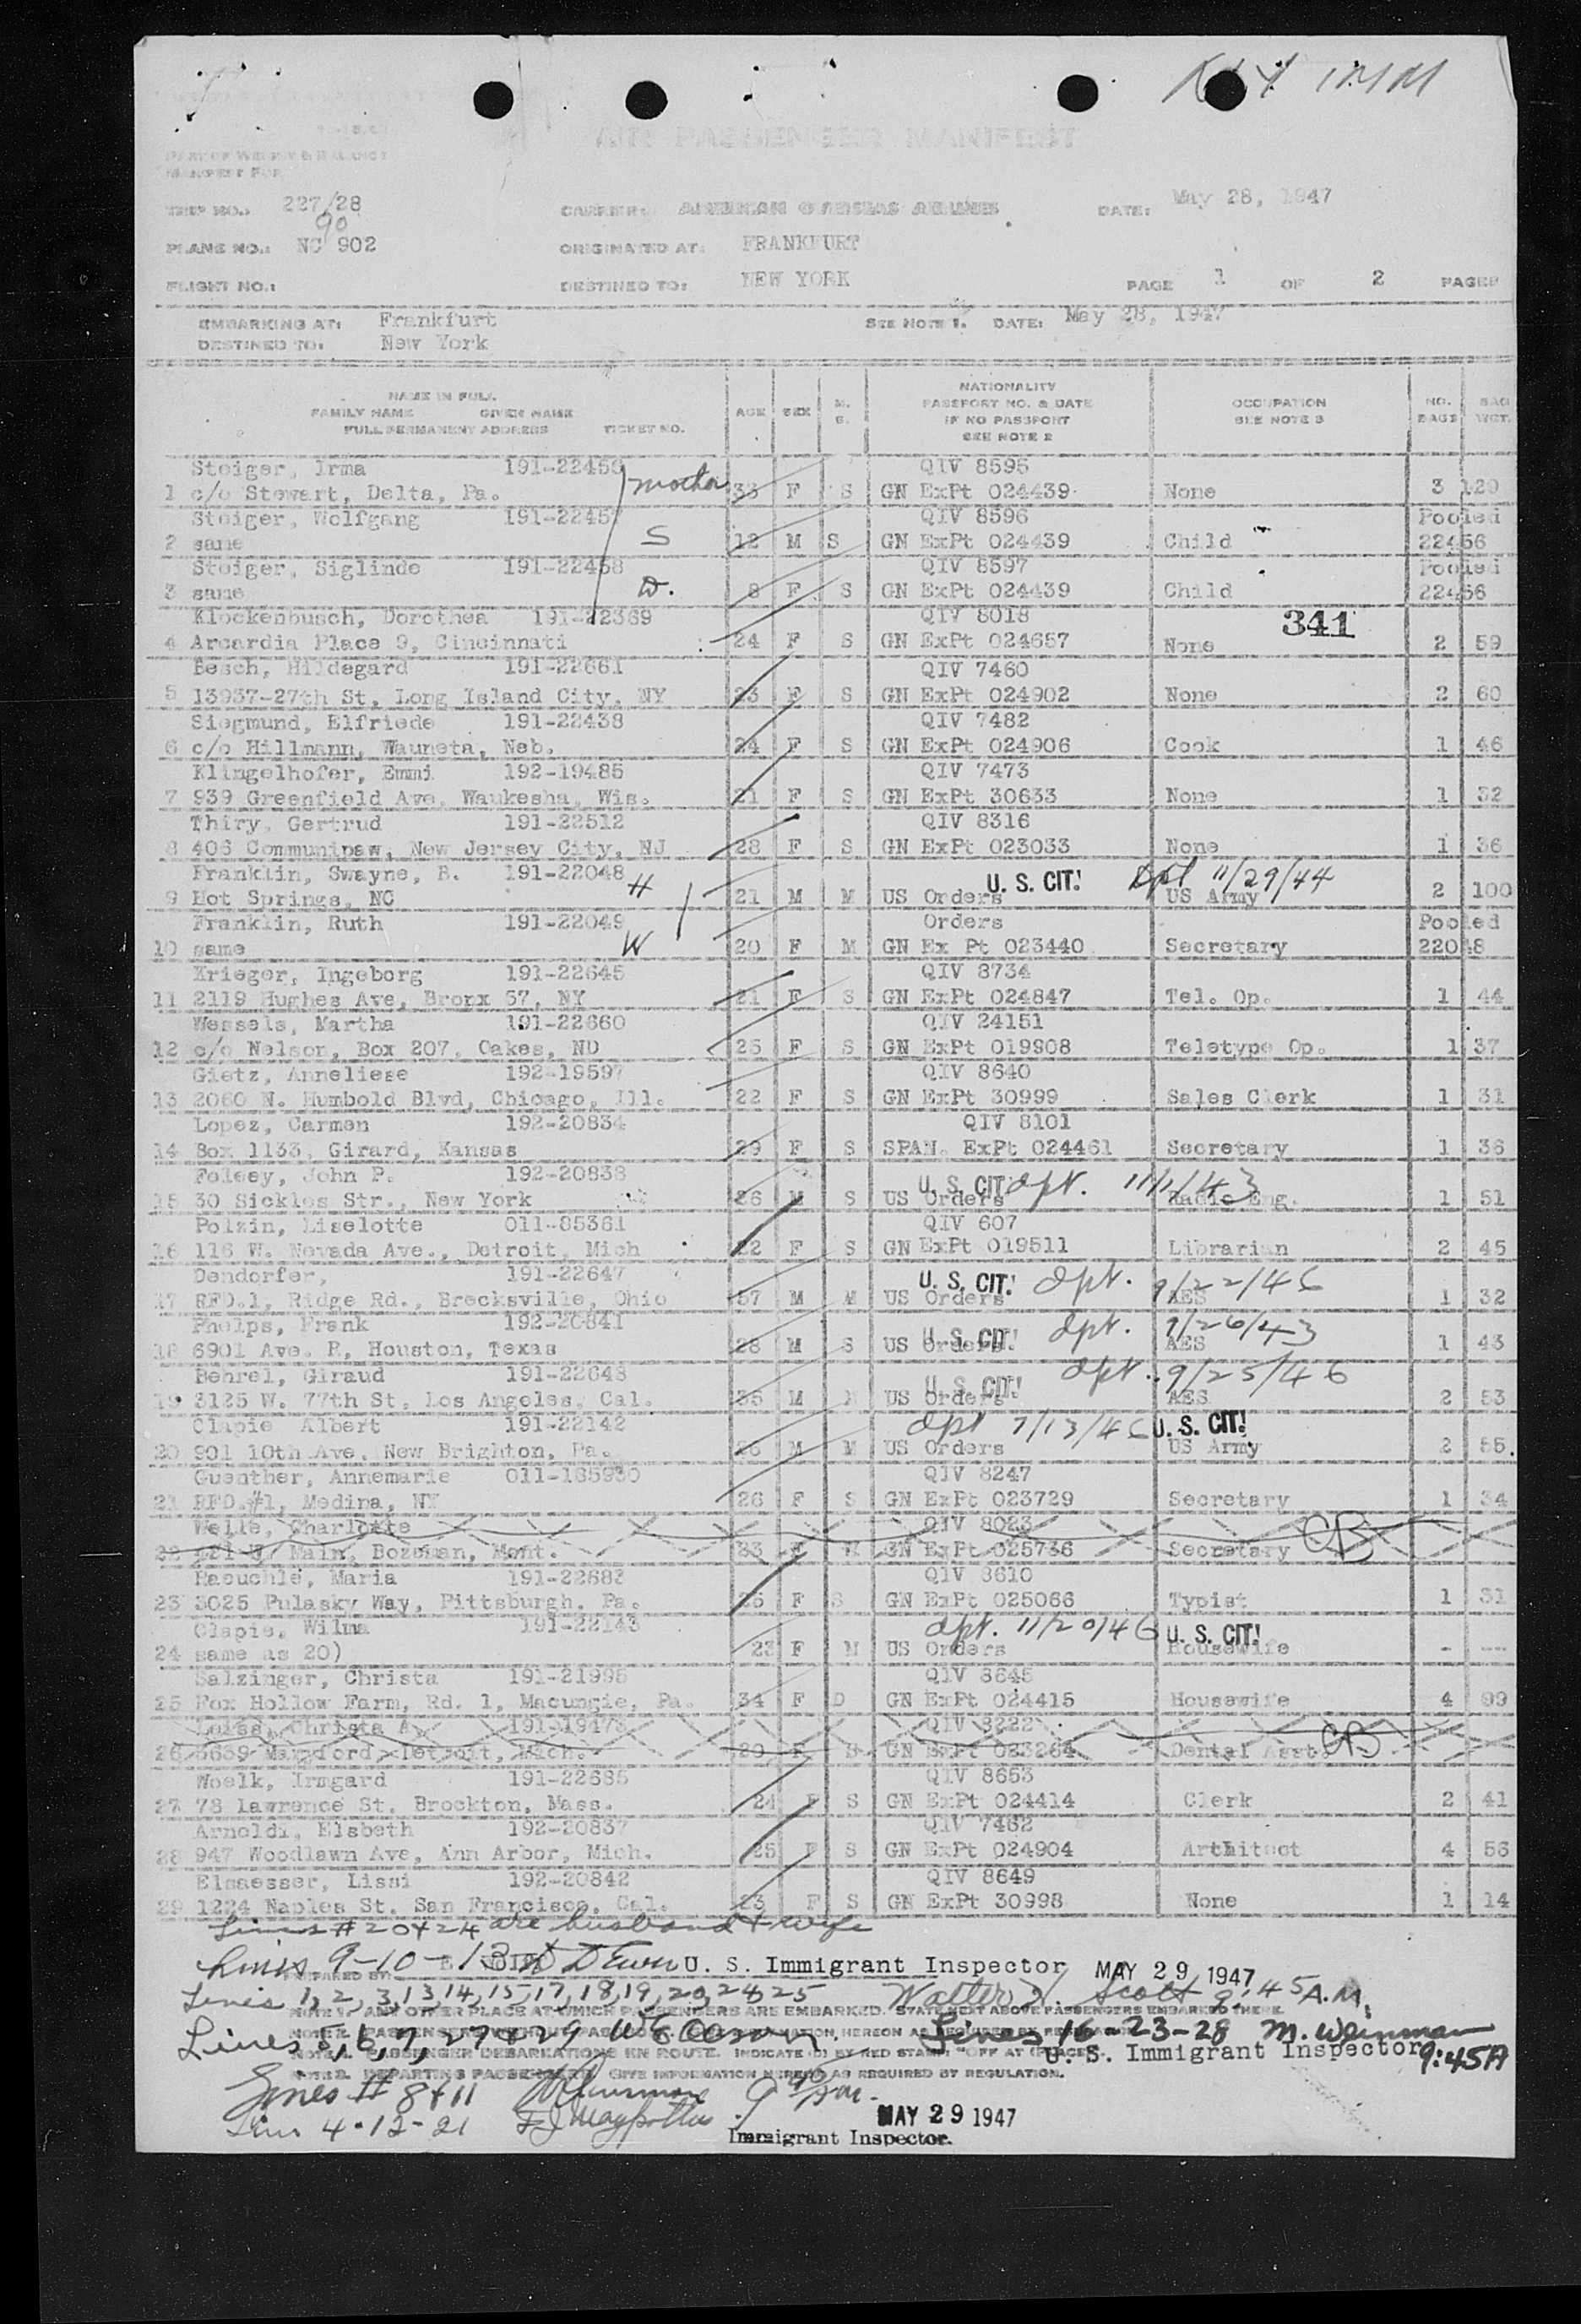 AIR PASSENGER MANIFEST
PART OF WEIGHT & BALANCE
MANIFEST FOR
TRIP NO.: 227/28 CARRIER: AMERICAN OVERSEAS AIRLINES DATE: May 28, 1947
90
PLANE NO.: NC 902 ORIGINATED AT: FRANKFURT
FLIGHT NO.: DESTINED TO: NEW YORK PAGE 1 OF 2 PAGES
EMBARKING AT: Frankfurt SEE NOTE 1. DATE: May 28, 1947
DESTINED TO: New York
NAME IN FULL
FAMILY NAME GIVEN NAME
FULL PERMANENT ADDRESS TICKET NO.
AGE SEX M. S.
NATIONALITY
PASSPORT NO. & DATE
IF NO PASSPORT
SEE NOTE 2
OCCUPATION
SEE NOTE 3
NO. BAGS BAG WGT.
Steiger, Irma 191-22456 QIV 8595
1 c/o Stewart, Delta, Pa. mother 33 F S GN ExPt 024439 None 3 129
Steiger, Wolfgang 191-22457 QIV 8596 Pooled
2 same S 12 M S GN ExPt 024439 Child 22456
Steiger, Siglinde 191-22458 QIV 8597 Pooled
3 same D. 8 F S GN ExPt 024439 Child 22456
Klockenbusch, Dorothea 191-22369 QIV 8018 341
4 Arcardia Place 9, Cincinnati 24 F S GN ExPt 024657 None 2 59
Besch, Hildegard 191-22661 QIV 7460
5 13937-27th St, Long Island City, NY 23 F S GN ExPt 024902 None 2 60
Siegmund, Elfriede 191-22438 QIV 7482
6 c/o Hillmann, Wauneta, Neb. 24 F S GN ExPt 024906 Cook 1 46
Klingelhofer, Emmi 192-19485 QIV 7473
7 939 Greenfield Ave, Waukesha, Wis. 21 F S GN ExPt 30633 None 1 32
Thiry, Gertrud 191-22512 QIV 8316
8 406 Communipaw, New Jersey City, NJ 28 F S GN ExPt 023033 None 1 36
Franklin, Swayne, B. 191-22048 H U. S. CIT! Dpt 11/29/44
9 Hot Springs, NC 21 M M US Orders US Army 2 100
Franklin, Ruth 191-22049 Orders Pooled
10 same W 20 F M GN Ex Pt 023440 Secretary 22048
Krieger, Ingeborg 191-22645 QIV 8734
11 2119 Hughes Ave, Bronx 57, NY 21 F S GN ExPt 024847 Tel. Op. 1 44
Wessels, Martha 191-22660 QIV 24151
12 c/o Nelson, Box 207, Oakes, ND 25 F S GN ExPt 019908 Teletype Op. 1 37
Gietz, Anneliese 192-19597 QIV 8640
13 2060 N. Humbold Blvd, Chicago, Ill. 22 F S GN ExPt 30999 Sales Clerk 1 31
Lopez, Carmen 192-20834 QIV 8101
14 Box 1133, Girard, Kansas 29 F S SPAN. ExPt 024461 Secretary 1 36
Folsey, John P. 192-20838 U. S. CIT! dpt. 11/1/43
15 30 Sickles Str., New York 36 M S US Orders Radio Eng. 1 51
Polzin, Liselotte 011-85361 QIV 607
16 116 W. Nevada Ave., Detroit, Mich 22 F S GN ExPt 019511 Librarian 2 45
Dendorfer, 191-22647 U. S. CIT! dpt. 9/22/46
17 RFD.1, Ridge Rd., Brecksville, Ohio 57 M M US Orders AES 1 32
Phelps, Frank 192-20841 U. S. CIT! dpt. 7/26/43
18 6901 Ave. R, Houston, Texas 28 M S US Orders AES 1 43
Behrel, Giraud 191-22648 U. S. CIT! dpt. 9/25/46
19 3125 W. 77th St, Los Angeles, Cal. 35 M US Orders AES 2 53
Clapie Albert 191-22142 dpt 7/13/46 U. S. CIT!
20 901 10th Ave, New Brighton, Pa. 26 M M US Orders US Army 2 55.
Guenther, Annemarie 011-185930 QIV 8247
21 RFD.#1, Medina, NY 26 F S GN ExPt 023729 Secretary 1 34
Welle, Charlotte QIV 8023
22 Main, Bozeman, Mont. 33 F GN ExPt 025736 Secretary CB
Raeuchle, Maria 191-22683 QIV 8610
23 3025 Pulasky Way, Pittsburgh. Pa. 25 F S GN ExPt 025066 Typist 1 31
Clapie, Wilma 191-22143 dpt. 11/20/46 U. S. CIT!
24 same as 20) 23 F M US Orders Housewife - ---
Salzinger, Christa 191-21995 QIV 8645
25 Fox Hollow Farm, Rd. 1, Macungie, Pa. 34 F D GN ExPt 024415 Housewife 4 99
Christa A. 191-19473 QIV 8222
26 Detroit, Mich. 29 F S GN ExPt 023264 Dental Asst. CB
Woelk, Irmgard 191-22685 QIV 8653
27 78 Lawrence St, Brockton, Mass. 24 F S GN ExPt 024414 Clerk 2 41
Arnoldi, Elsbeth 192-20837 QIV 7462
28 947 Woodlawn Ave, Ann Arbor, Mich. 25 F S GN ExPt 024904 Architect 4 53
Elsaesser, Lissi 192-20842 QIV 8649
29 1224 Naples St, San Francisco, Cal. 23 F S GN ExPt 30998 None 1 14
Lines #20+24 are husband + wife
Lines 9-10- U. S. Immigrant Inspector MAY 29 1947
PREPARED BY
Lines 1, 2, 3, 13, 14, 15, 17, 18, 19, 20, 24 25 Walter H. Scott 9:45 A.M.
NOTE 1. ANY OTHER PLACE AT WHICH PASSENGERS ARE EMBARKED. STATEMENT ABOVE PASSENGERS EMBARKED THERE.
Lines 5, 6, 7, 27 & 29 Lines 16-23-28 M. Weinman
PASSENGER DEBARKATIONS EN ROUTE. INDICATE BY RED STAMP "OFF AT (PLACE)".
U. S. Immigrant Inspector 9:45A
DEPARTING PASSENGERS GIVE INFORMATION HEREON AS REQUIRED BY REGULATION.
Lines # 8+11
Lines 4-12-21 MAY 29 1947
Immigrant Inspector.